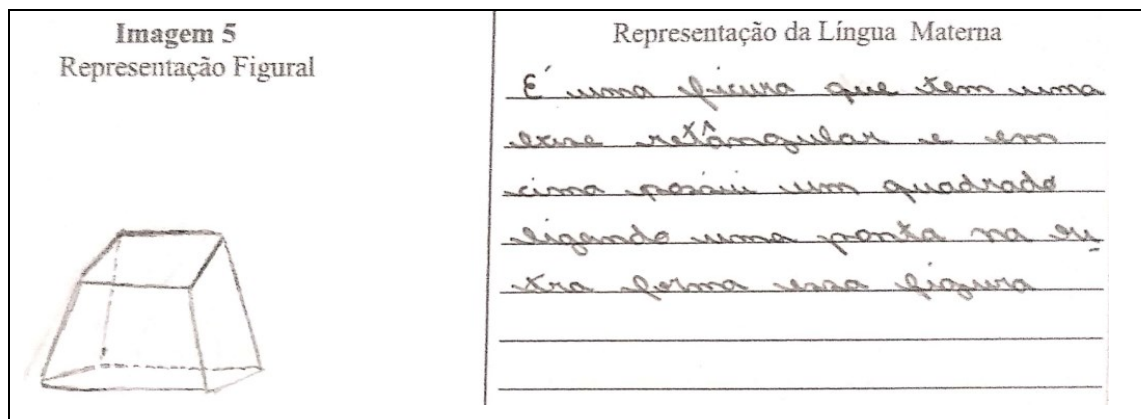 Imagem 5
Representação Figural
Representação da Língua Materna
É uma ficura que tem uma
retângular e em
cima possui um quadrado
ligando uma ponta na ou
tra forma essa figura